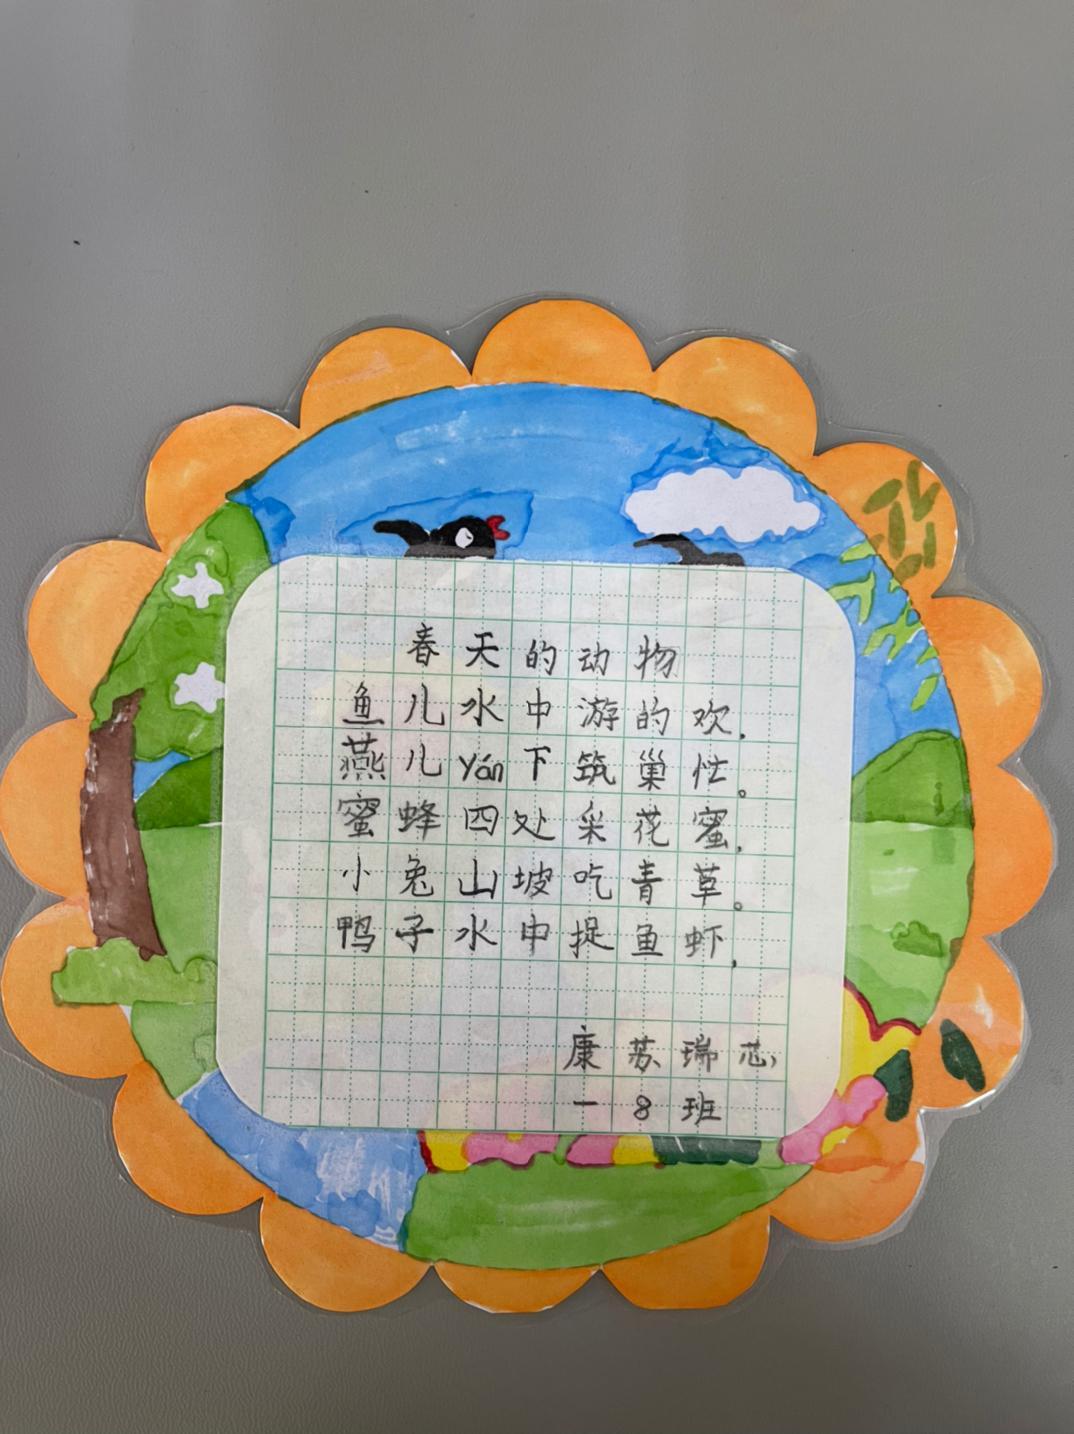 春天的动物
鱼儿水中游的欢.
燕儿yán下筑巢忙。
蜜蜂四处采花蜜.
小兔山坡吃青草。
鸭子水中捉鱼虾.
康苏瑞芯
一8班